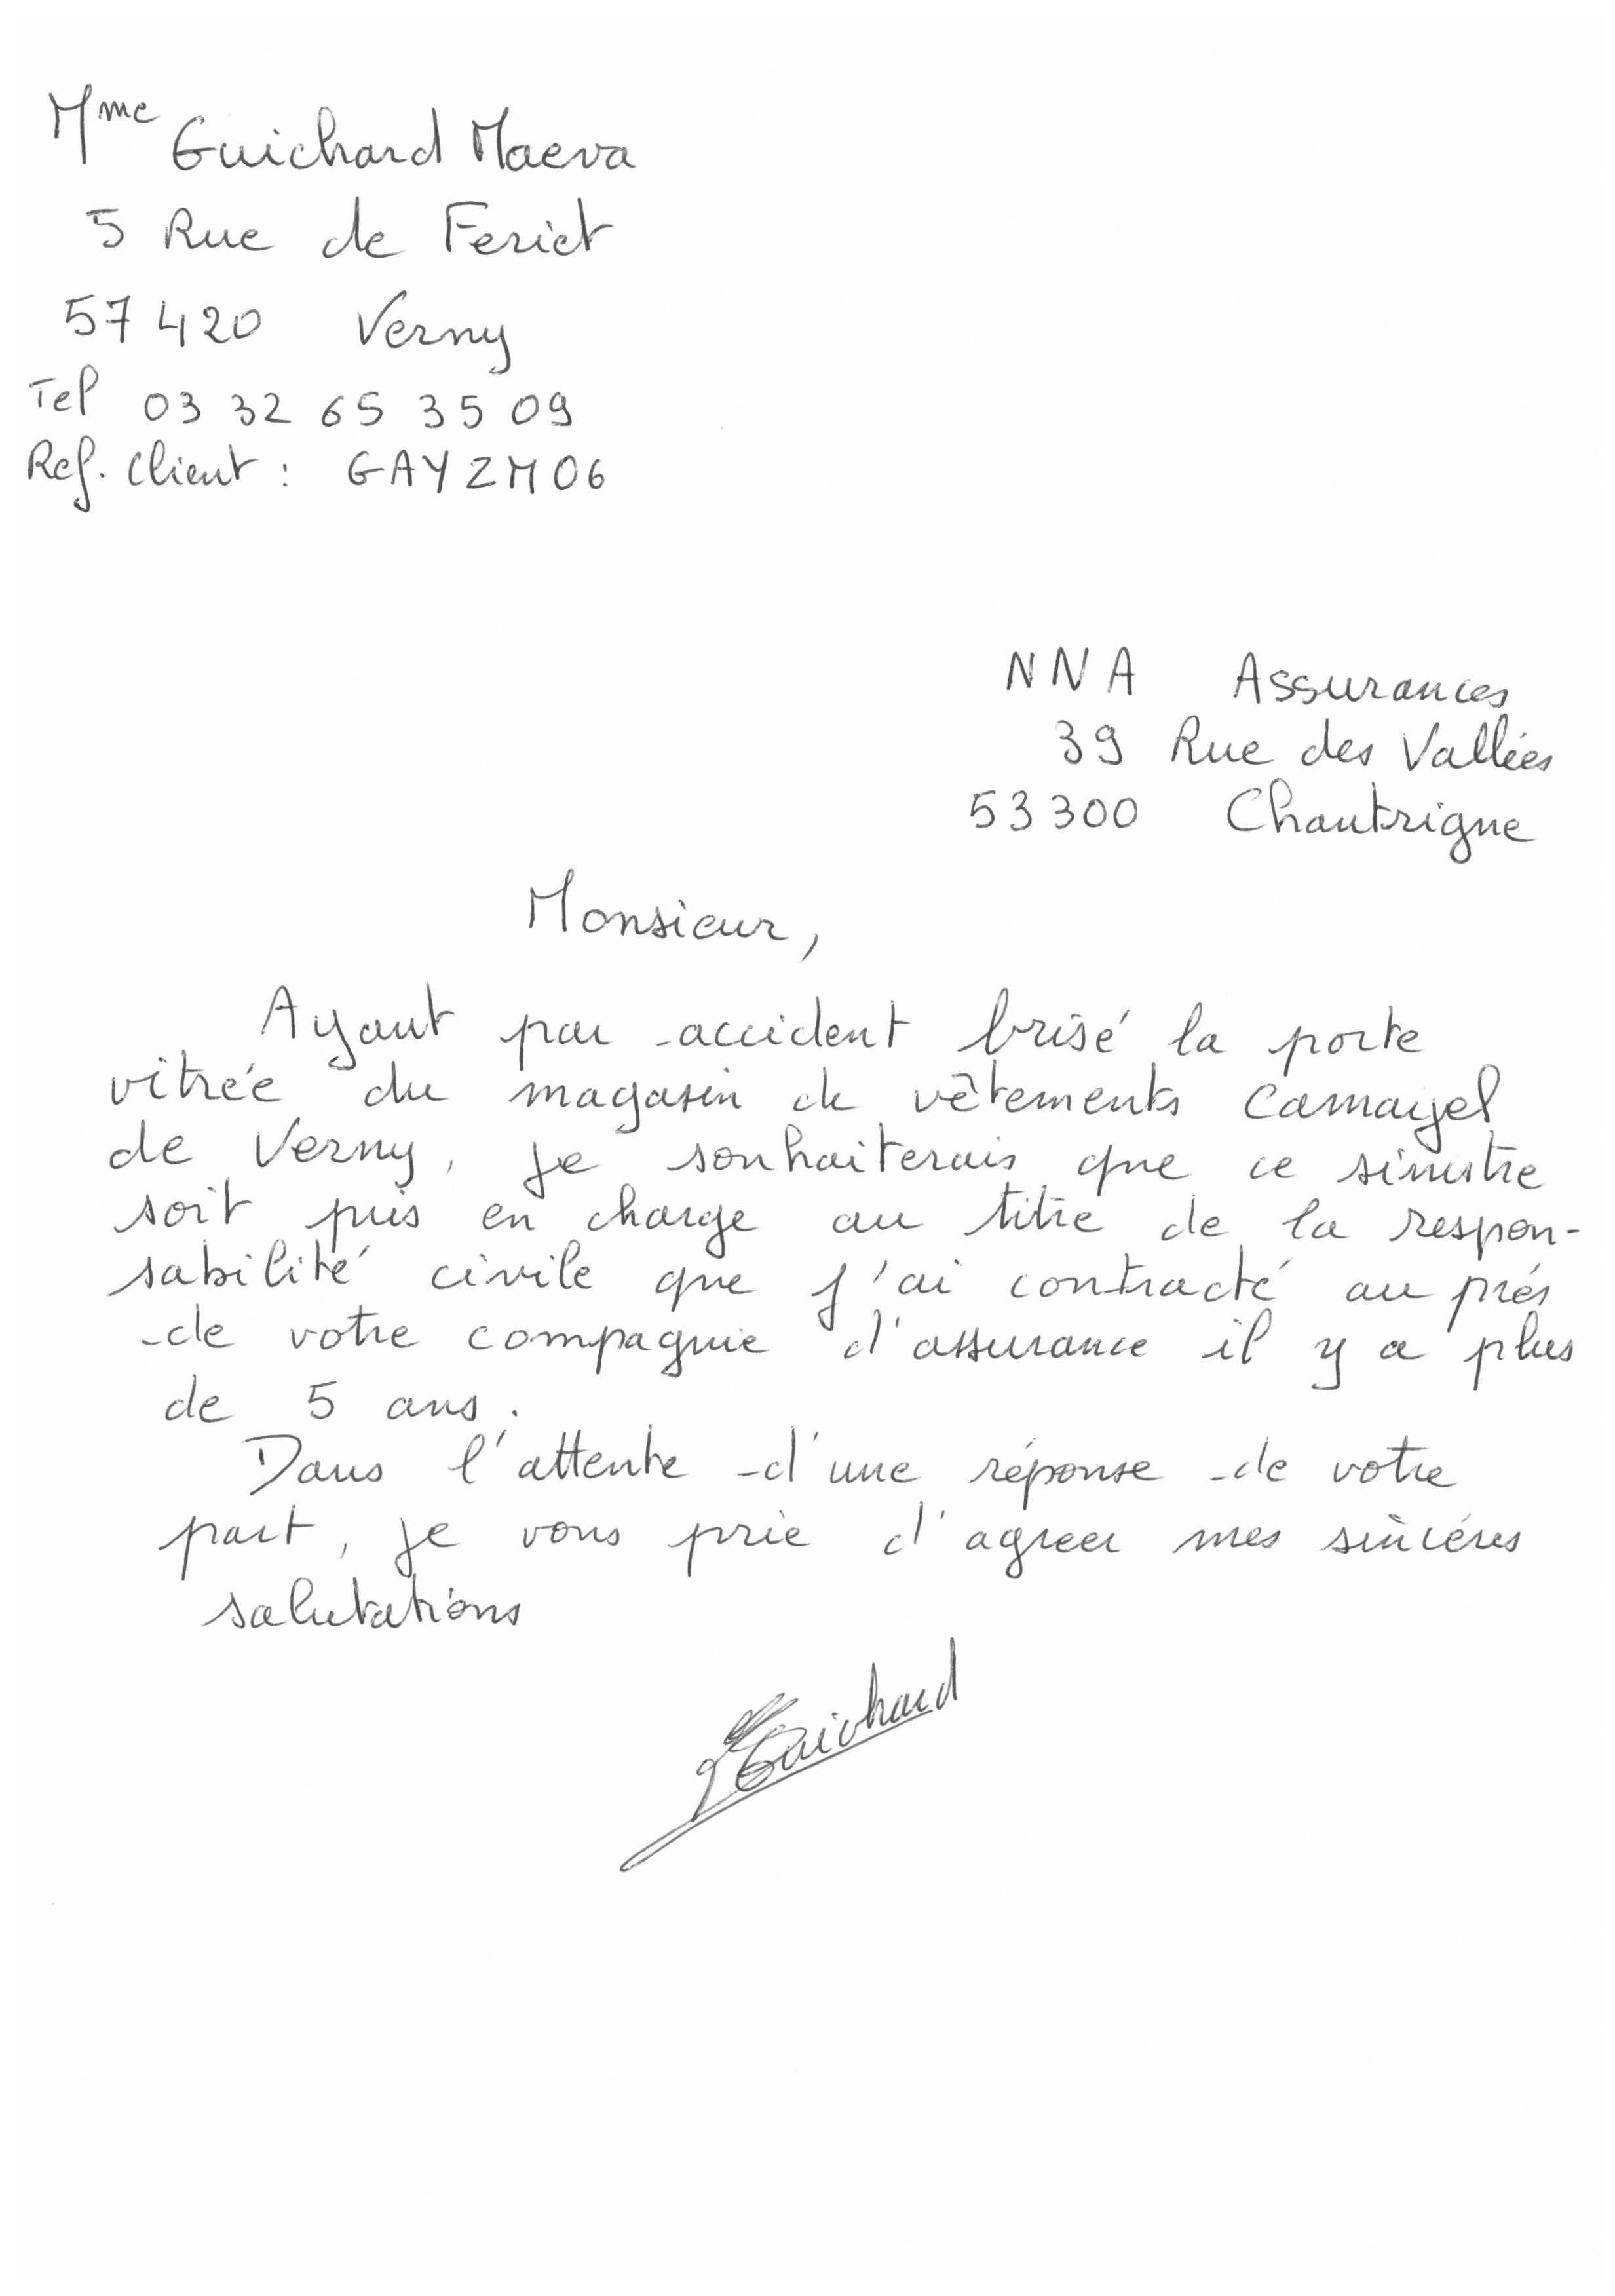 Mme Guichard Maeva
5 Rue de Feriet
57420 Verny
Tel 03 32 65 35 09
Ref. Client : GAYZM06
NNA Assurances
39 Rue des Vallées
53300 Chantrigne
Monsieur,
Ayant par accident brisé la porte
vitrée du magasin de vêtements Camayel
de Verny, je souhaiterais que ce sinistre
soit pris en charge au titre de la respon-
sabilité civile que j'ai contracté au prés
de votre compagnie d'assurance il y a plus
de 5 ans.
Dans l'attente d'une réponse de votre
part, je vous prie d'agreer mes sincéres
salutations
Guichard